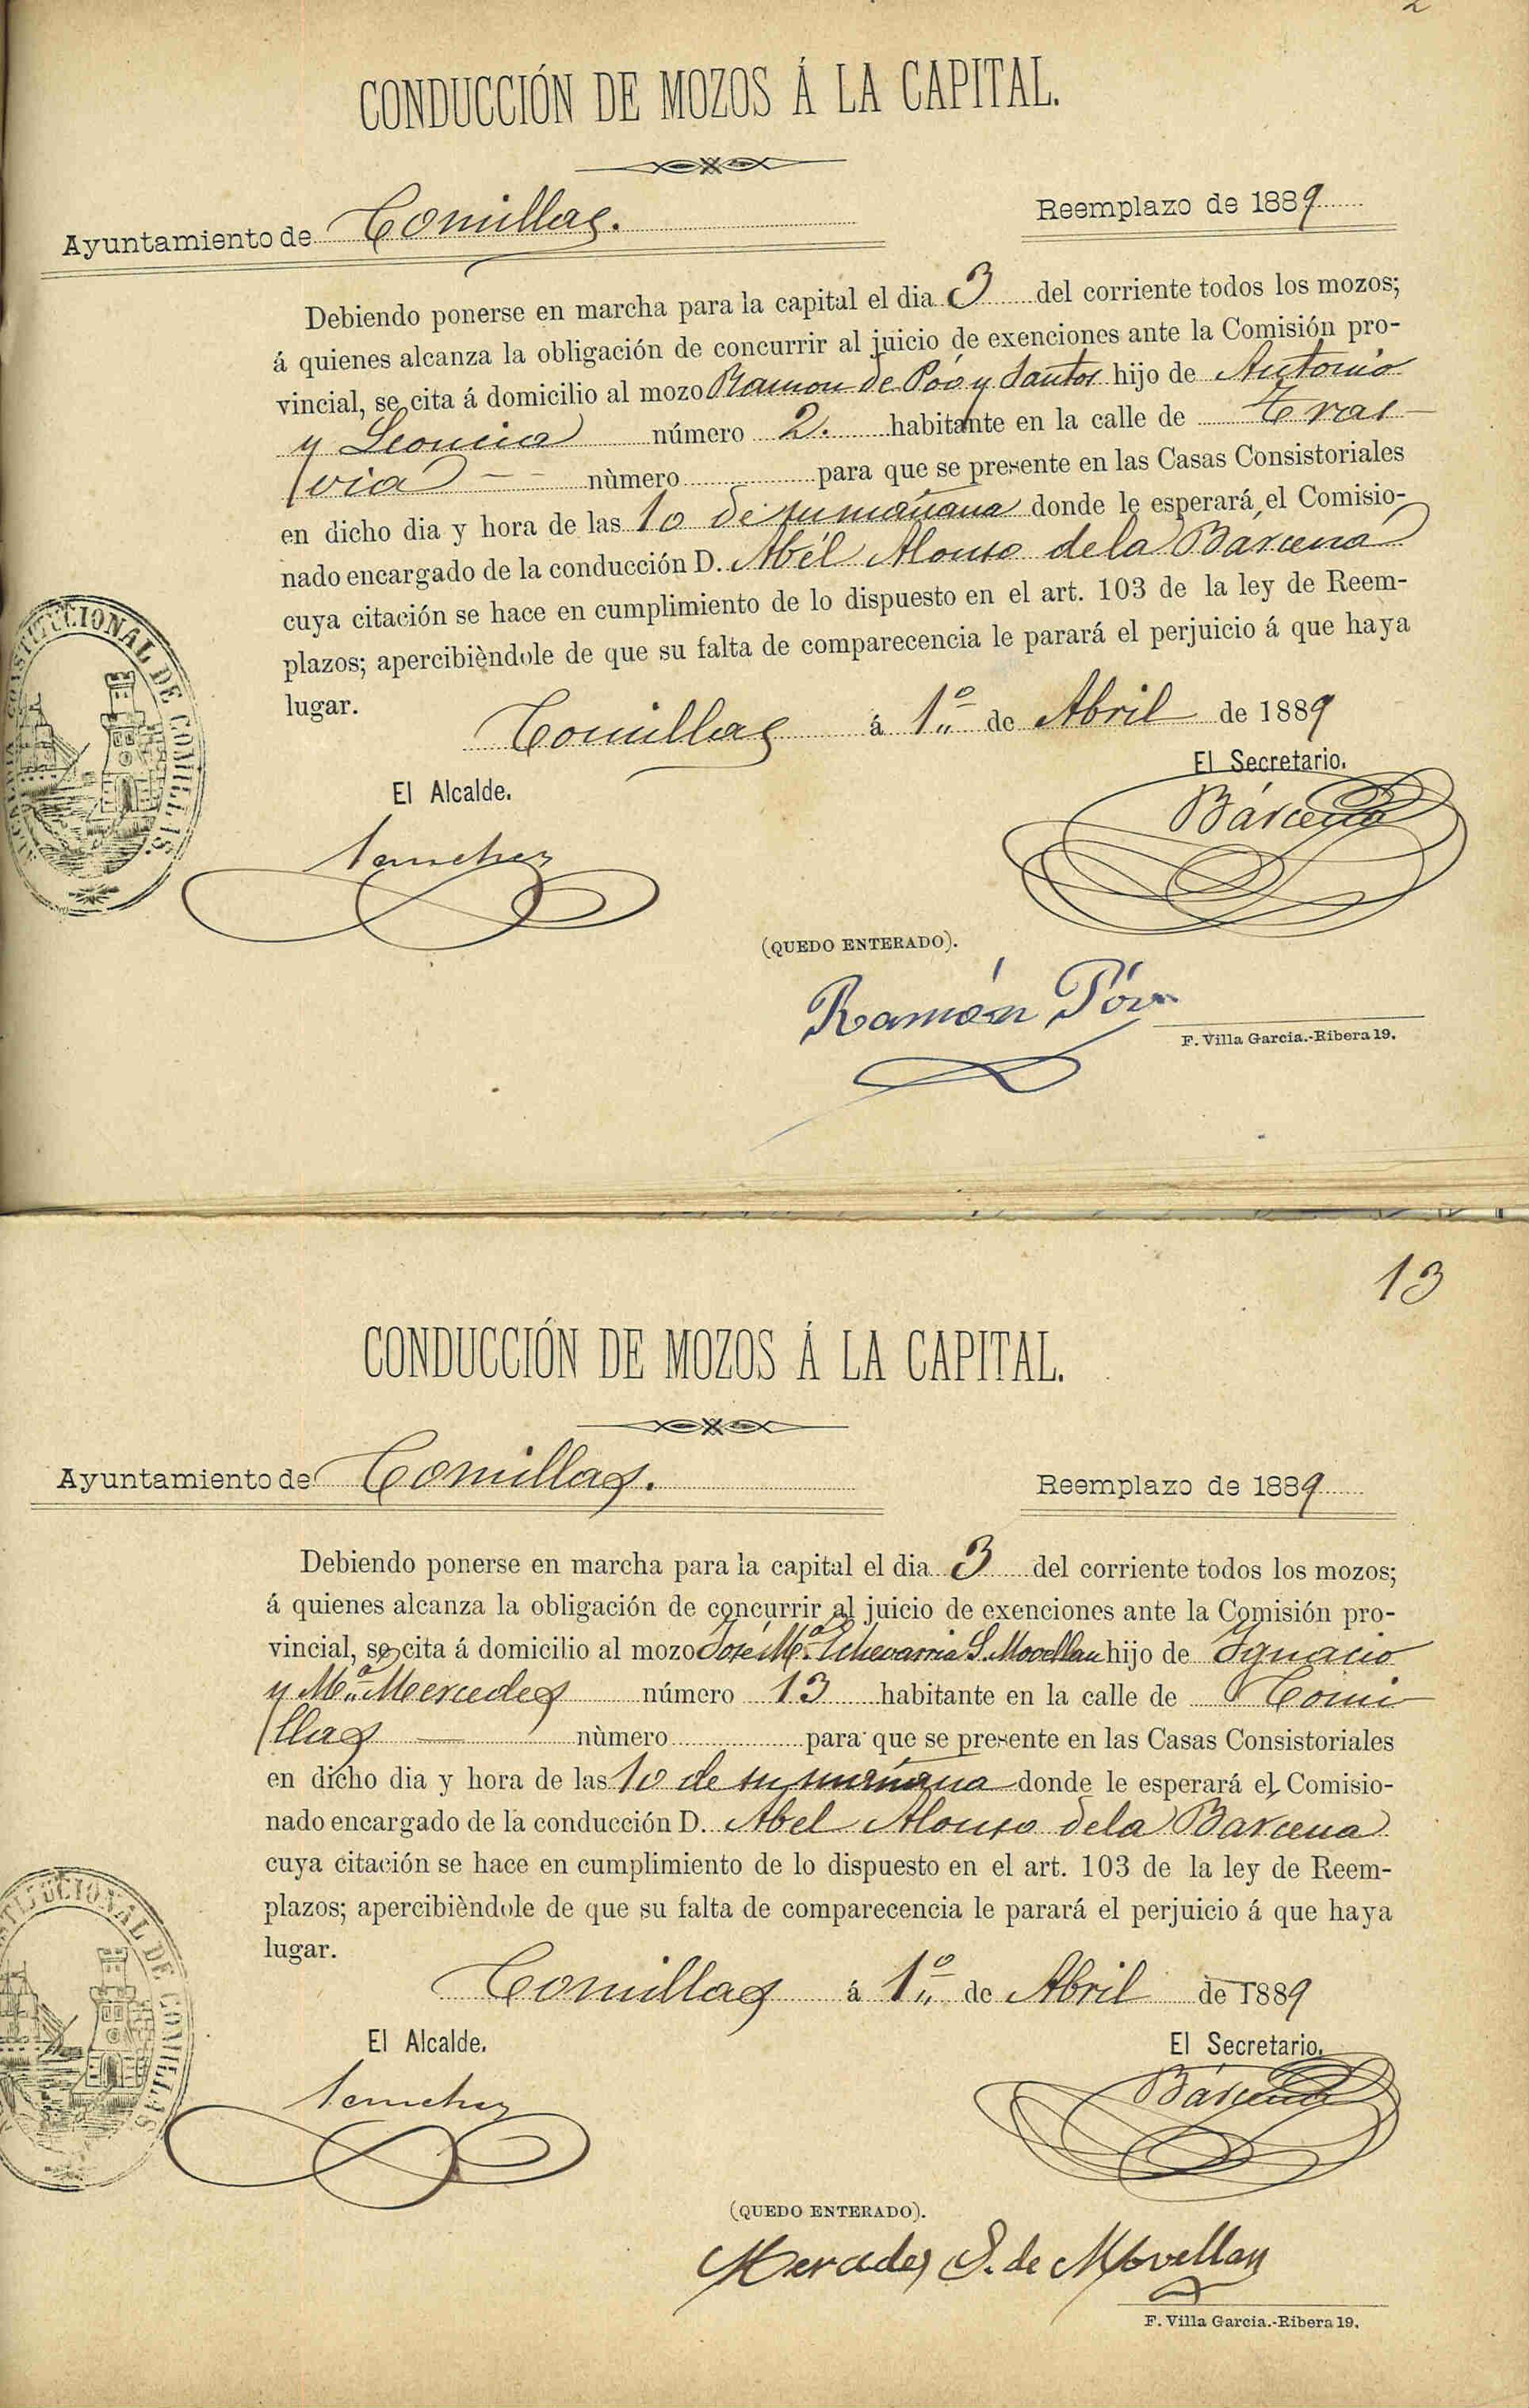 2
CONDUCCIÓN DE MOZOS Á LA CAPITAL.
Ayuntamiento de Comillas. Reemplazo de 1889
Debiendo ponerse en marcha para la capital el dia 3 del corriente todos los mozos;
á quienes alcanza la obligación de concurrir al juicio de exenciones ante la Comisión pro-
vincial, se cita á domicilio al mozo Ramon de Poó y Santos hijo de Antonio
y Leoncia número 2. habitante en la calle de Tras-
via nùmero para que se presente en las Casas Consistoriales
en dicho dia y hora de las 10 de su mañana donde le esperará el Comisio-
nado encargado de la conducción D. Abél Alonso de la Bárcena
cuya citación se hace en cumplimiento de lo dispuesto en el art. 103 de la ley de Reem-
plazos; apercibièndole de que su falta de comparecencia le parará el perjuicio á que haya
lugar.
Comillas á 1º de Abril de 1889
El Alcalde. El Secretario.
Sanchez Bárcena
CONSTITUCIONAL DE COMILLAS.
(QUEDO ENTERADO).
Ramón Póo
F. Villa Garcia.-Ribera 19.
13
CONDUCCIÓN DE MOZOS Á LA CAPITAL.
Ayuntamiento de Comillas. Reemplazo de 1889
Debiendo ponerse en marcha para la capital el dia 3 del corriente todos los mozos;
á quienes alcanza la obligación de concurrir al juicio de exenciones ante la Comisión pro-
vincial, se cita á domicilio al mozo José Mª Echevarria S. Movellan hijo de Ygnacio
y Mª Mercedes número 13 habitante en la calle de Comi
llas nùmero para que se presente en las Casas Consistoriales
en dicho dia y hora de las 10 de su mañana donde le esperará el Comisio-
nado encargado de la conducción D. Abel Alonso de la Barcena
cuya citación se hace en cumplimiento de lo dispuesto en el art. 103 de la ley de Reem-
plazos; apercibièndole de que su falta de comparecencia le parará el perjuicio á que haya
lugar.
Comillas á 1º de Abril de 1889
El Alcalde. El Secretario.
Sanchez Bárcena
CONSTITUCIONAL DE COMILLAS
(QUEDO ENTERADO).
Mercedes S. de Movellan
F. Villa Garcia.-Ribera 19.